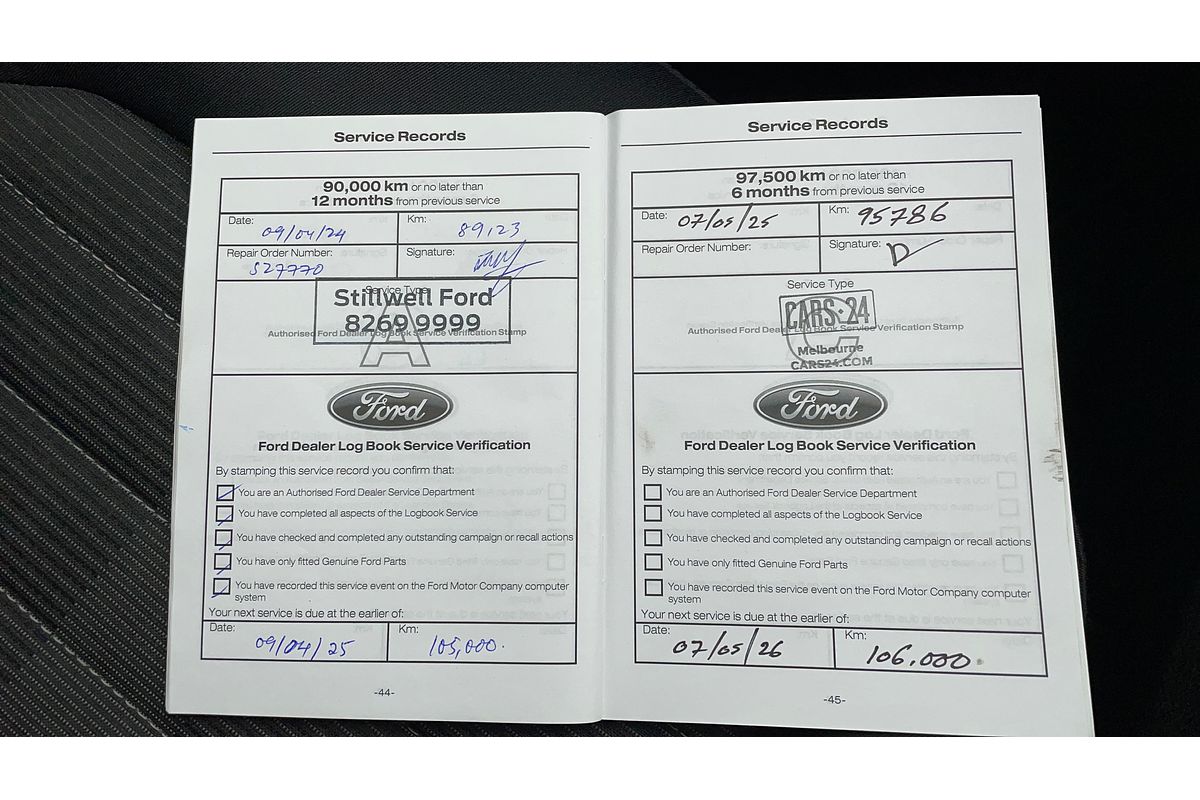 Service Records
90,000 km or no later than
12 months from previous service
Date: 09/04/24
Km: 89,123
Repair Order Number: 527770
Signature:
Service Type
Stillwell Ford
8269 9999
Authorised Ford Dealer Log Book Service Verification Stamp
A
Ford
Ford Dealer Log Book Service Verification
By stamping this service record you confirm that:
You are an Authorised Ford Dealer Service Department
You have completed all aspects of the Logbook Service
You have checked and completed any outstanding campaign or recall actions
You have only fitted Genuine Ford Parts
You have recorded this service event on the Ford Motor Company computer
system
Your next service is due at the earlier of:
Date: 09/04/25
Km: 105,000.
-44-
Service Records
97,500 km or no later than
6 months from previous service
Date: 07/05/25
Km: 95786
Repair Order Number:
Signature:
Service Type
CARS·24
Authorised Ford Dealer Log Book Service Verification Stamp
C
Melbourne
CARS24.COM
Ford
Ford Dealer Log Book Service Verification
By stamping this service record you confirm that:
You are an Authorised Ford Dealer Service Department
You have completed all aspects of the Logbook Service
You have checked and completed any outstanding campaign or recall actions
You have only fitted Genuine Ford Parts
You have recorded this service event on the Ford Motor Company computer
system
Your next service is due at the earlier of:
Date: 07/05/26
Km: 106,000.
-45-